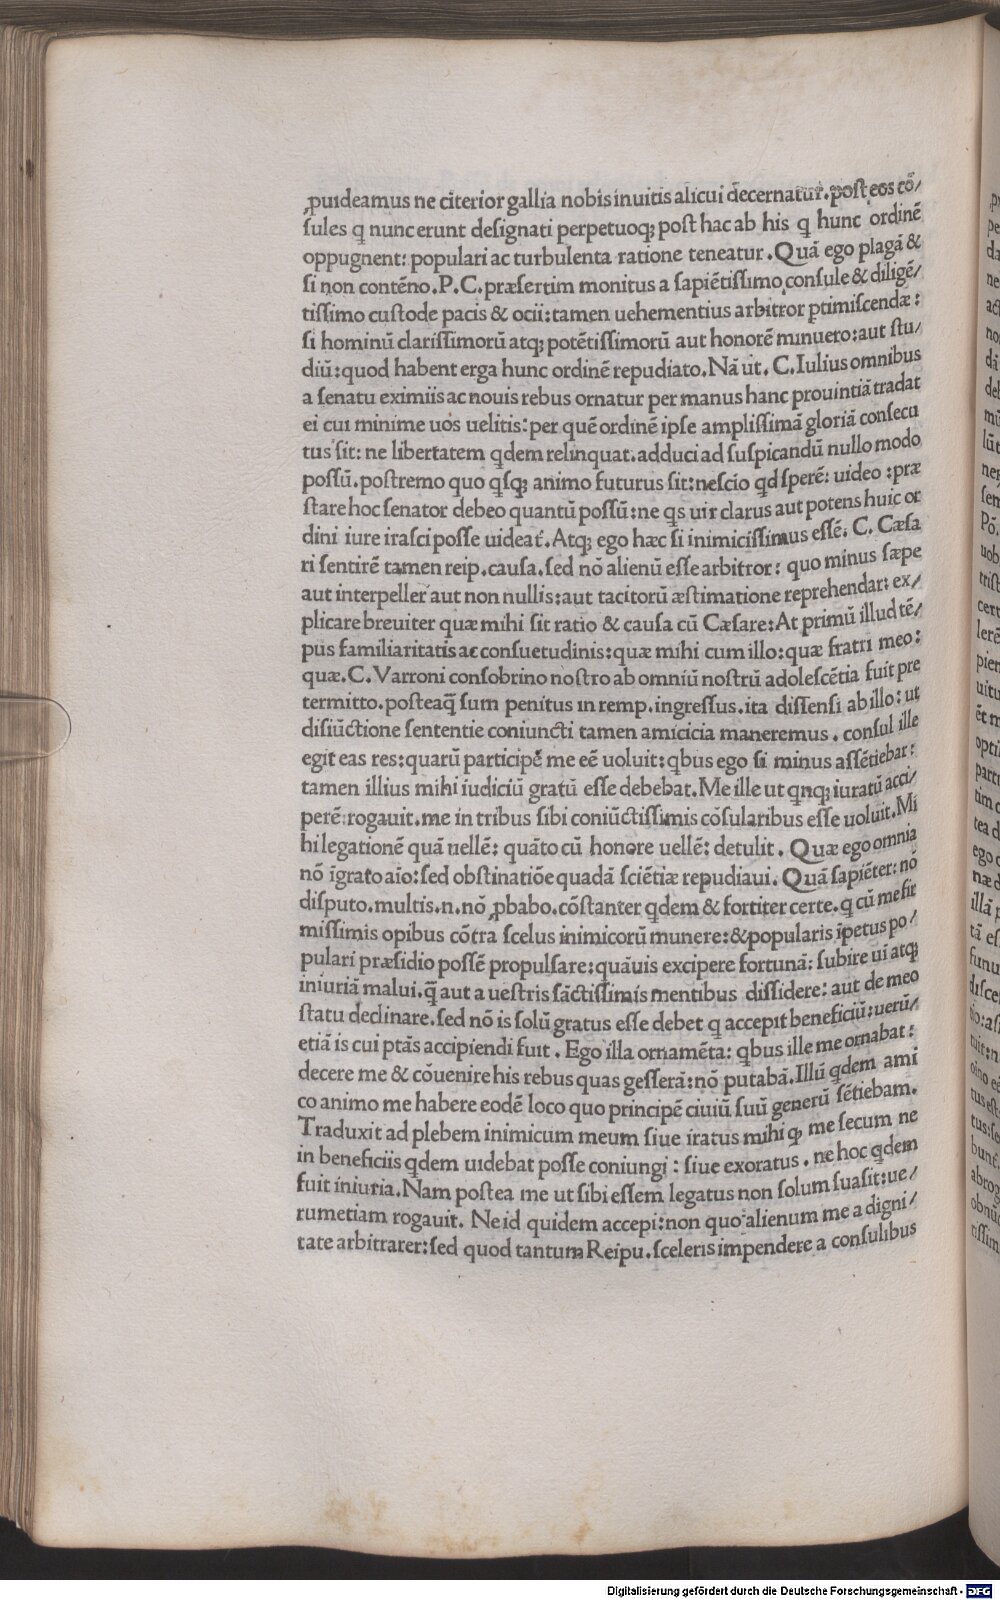 ꝓuideamus ne citerior gallia nobis inuitis alicui decernatur. post eos cō/
sules q̃ nunc erunt designati perpetuoq; post hac ab his q̃ hunc ordinē
oppugnent: populari ac turbulenta ratione teneatur. Quā ego plagā &
si non contēno. P. C. præsertim monitus a sapiētissimo consule & diligē/
tissimo custode pacis & ocii: tamen uehementius arbitror ꝑtimiscendæ:
si hominū clarissimorū atq; potētissimorū aut honorē minuero: aut stu/
diū: quod habent erga hunc ordinē repudiato. Nā ut. C. Iulius omnibus
a senatu eximiis ac nouis rebus ornatur per manus hanc prouintiā tradat
ei cui minime uos uelitis: per quē ordinē ipse amplissimā gloriā consecu
tus sit: ne libertatem q̃dem relinquat. adduci ad suspicandū nullo modo
possū. postremo quo q̃sq; animo futurus sit: nescio qd sperē: uideo: præ
stare hoc senator debeo quantū possū: ne q̃s uir clarus aut potens huic or
dini iure irasci posse uideat̃. Atq; ego hæc si inimicissimus essē. C. Cæsa
ri sentirē tamen reip. causa. sed nō alienū esse arbitror: quo minus sæpe
aut interpeller aut non nullis: aut tacitorū æstimatione reprehendar: ex/
plicare breuiter quæ mihi sit ratio & causa cū Cæsare: At primū illud tē/
pus familiaritatis ac consuetudinis: quæ mihi cum illo: quæ fratri meo:
quæ. C. Varroni consobrino nostro ab omniū nostrū adolescētia fuit pre
termitto. posteaq̃ sum penitus in remp. ingressus. ita dissensi ab illo: ut
disiūctione sententie coniuncti tamen amicicia maneremus. consul ille
egit eas res: quarū participē me eē uoluit: q̃bus ego si minus assētiebar:
tamen illius mihi iudiciū gratū esse debebat. Me ille ut q̃nq; iuratū acci/
perē: rogauit. me in tribus sibi coniūctissimis cōsularibus esse uoluit. Mi
hi legationē quā uellē: quāto cū honore uellē: detulit. Quæ ego omnia
nō īgrato aīo: sed obstinatiōe quadā sciētiæ repudiaui. Quā sapiēter: nō
disputo. multis. n. nō ꝓbabo. cōstanter q̃dem & fortiter certe. q̃ cū me fir
missimis opibus cōtra scelus inimicorū munere: & popularis īpetus po/
pulari præsidio possē propulsare: quāuis excipere fortunā: subire uī atq;
iniuriā malui. q̃ aut a uestris sāctissimis mentibus dissidere: aut de meo
statu declinare. sed nō is solū gratus esse debet q̃ accepit beneficiū: uerū/
etiā is cui ptās accipiendi fuit. Ego illa ornamēta: q̃bus ille me ornabat:
decere me & cōuenire his rebus quas gesserā: nō putabā. Illū q̃dem ami
co animo me habere eodē loco quo principē ciuiū suū generū sētiebam.
Traduxit ad plebem inimicum meum siue iratus mihi q̃ me secum ne
in beneficiis q̃dem uidebat posse coniungi: siue exoratus. ne hoc q̃dem
fuit iniuria. Nam postea me ut sibi essem legatus non solum suasit: ue/
rumetiam rogauit. Ne id quidem accepi: non quo alienum me a digni/
tate arbitrarer: sed quod tantum Reipu. sceleris impendere a consulibus
Digitalisierung gefördert durch die Deutsche Forschungsgemeinschaft - DFG